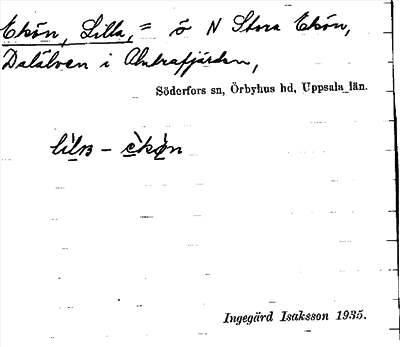 Ekön, Lilla, = ö N Stora Ekön,
Dalälven i Untrafjärden,
Söderfors sn, Örbyhus hd, Uppsala län.
lìlʙ – èkǿn
Ingegärd Isaksson 1935.